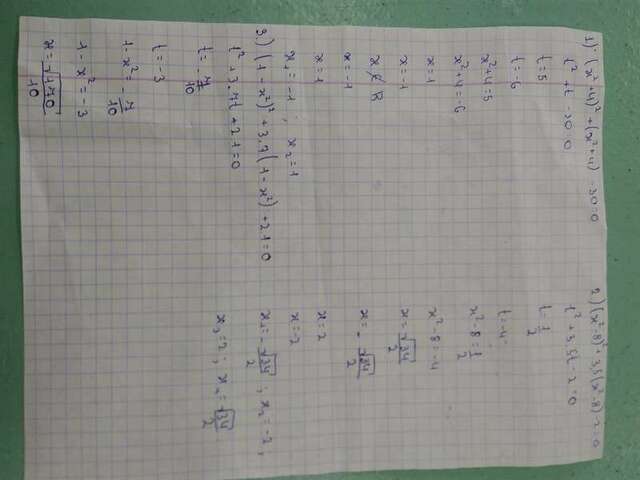 1) (x²+4)² + (x²+4) - 30=0
t² + t - 30=0
t=5
t=-6
x²+4=5
x²+4=-6
x=1
x=-1
x∉R
x=-1
x=1
x₁=-1 ; x₂=1
3) (1-x²)² + 3,7(1-x²) + 2,1=0
t² + 3,7t + 2,1=0
t=-7/10
t=-3
1-x²=-7/10
1-x²=-3
x=-√170/10
2) (x²-8)² + 3,5(x²-8) - 2=0
t² + 3,5t - 2=0
t=1/2
t=-4
x²-8=1/2
x²-8=-4
x=√34/2
x=-√34/2
x=2
x=-2
x₁=-√34/2 ; x₂=-2;
x₃=2 ; x₄=√34/2